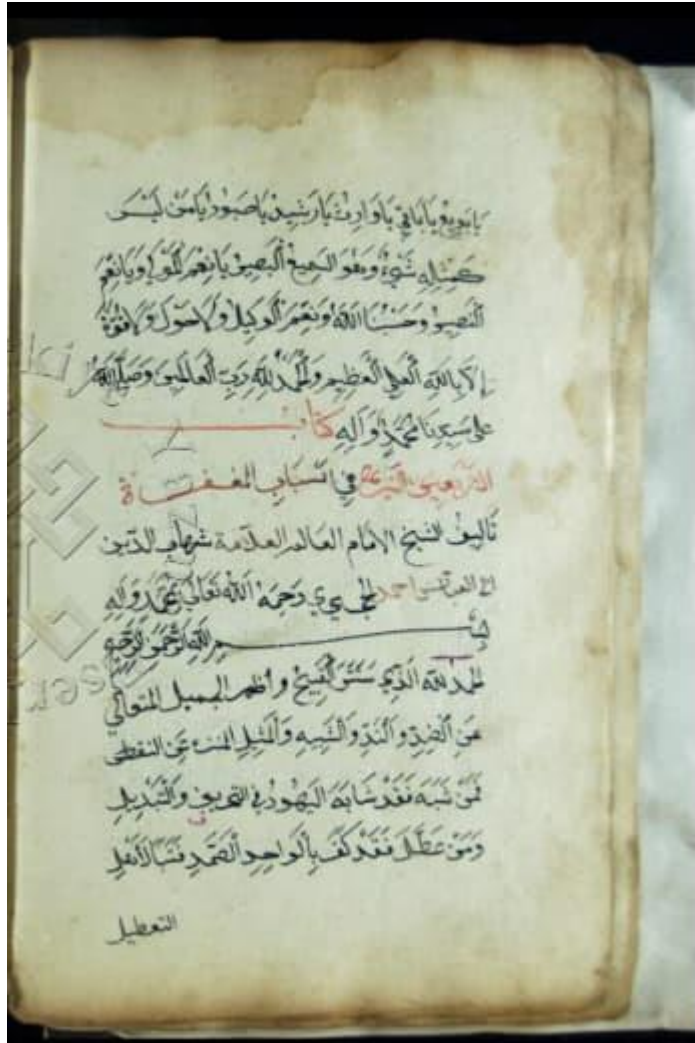 يَا بَدِيعُ يَا بَاقِي يَا وَارِثُ يَا رَشِيدُ يَا صَبُورُ يَا مَنْ لَيْسَ
كَمِثْلِهِ شَيْءٌ وَهُوَ السَّمِيعُ الْبَصِيرُ يَا نِعْمَ الْمَوْلَى وَيَا نِعْمَ
النَّصِيرُ وَحَسْبُنَا اللَّهُ وَنِعْمَ الْوَكِيلُ وَلَا حَوْلَ وَلَا قُوَّةَ
إِلَّا بِاللَّهِ الْعَلِيِّ الْعَظِيمِ وَالْحَمْدُ لِلَّهِ رَبِّ الْعَالَمِينَ وَصَلَّى اللَّهُ
عَلَى سَيِّدِنَا مُحَمَّدٍ وَآلِهِ كتاب
في اسباب المغفرة
تَأليفُ الشيخ الامام العالم العلامة شهاب الدين
ابي العباس احمد رَحِمَهُ اللَّهُ تَعَالَى بِمُحَمَّدٍ وَآلِهِ
بِسْمِ اللَّهِ الرَّحْمَنِ الرَّحِيمِ
الحمد لله الَّذِي سَتَرَ الْقَبِيحَ وأظهر الجميل المتعالي
عَنِ الضِّدِّ وَالنِّدِّ وَالشَّبِيهِ وَالْمَثِيلِ عَنِ
فَمَنْ شَبَّهَ فَقَدْ شَابَهَ الْيَهُودَ فِي التحريف وَالتَّبْدِيلِ
وَمَنْ عَطَّلَ فَقَدْ كَفَرَ بِالْوَاحِدِ الصَّمَدِ فَتَبًّا لِأَهْلِ
التعطيل